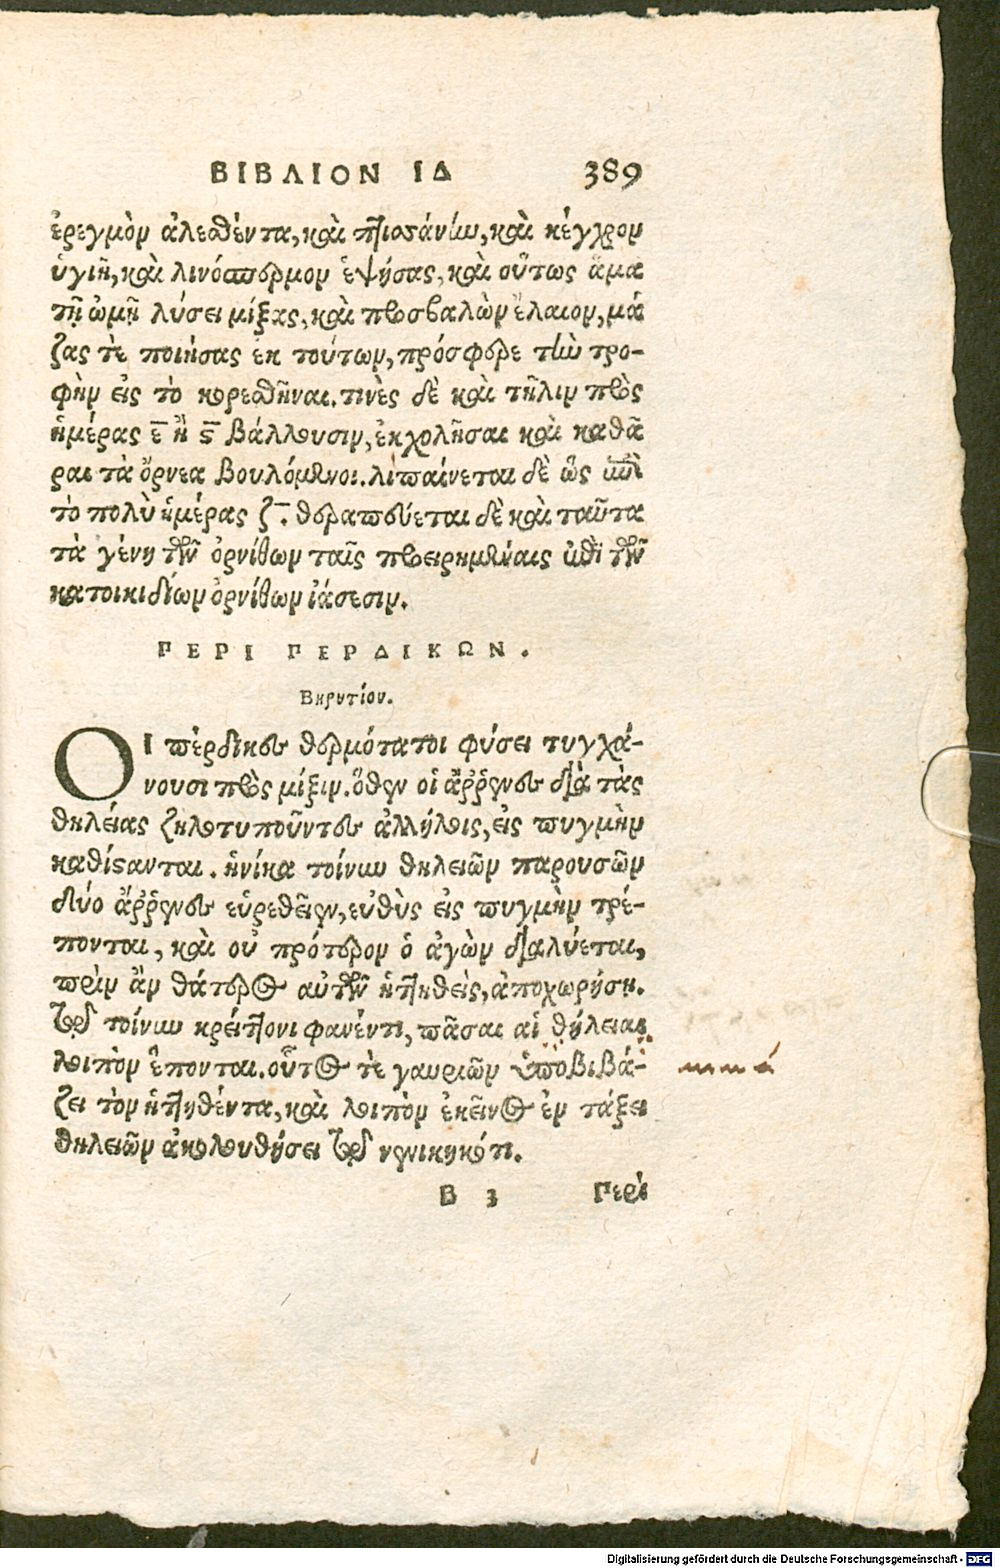 ΒΙΒΛΙΟΝ ΙΔ 389
ἐρεγμὸν ἀλεσθέντα, καὶ πτισσάνην, καὶ κέγχρον
ὑγιῆ, καὶ λινόσπερμον ἑψήσας, καὶ οὕτως ἅμα
τῇ ὠμῇ λύσει μίξας, καὶ προσβαλὼν ἔλαιον, μά
ζας τὲ ποιήσας ἐκ τούτων, πρόσφερε τὴν τρο-
φὴν εἰς τὸ κορεσθῆναι. τινὲς δὲ καὶ τῆλιν πρὸς
ἡμέρας ε̅ ἢ ϛ̅ βάλλουσιν, ἐκχολῆσαι καὶ καθᾶ
ραι τὰ ὄρνεα βουλόμενοι. λιπαίνεται δὲ ὡς ἐπὶ
τὸ πολὺ ἡμέρας ζ̅. θεραπεύεται δὲ καὶ ταῦτα
τὰ γένη τῶν ὀρνίθων ταῖς προειρημέναις ἐπὶ τῶν
κατοικιδίων ὀρνίθων ἰάσεσιν.
ΠΕΡΙ ΠΕΡΔΙΚΩΝ.
Βηρυτίου.
ΟΙ πέρδικες θερμότατοι φύσει τυγχά-
νουσι πρὸς μίξιν. ὅθεν οἱ ἄῤῥενες διὰ τὰς
θηλείας ζηλοτυποῦντες ἀλλήλοις, εἰς πυγμὴν
καθίστανται. ἡνίκα τοίνυν θηλειῶν παρουσῶν
δύο ἄῤῥενες εὑρεθεῖεν, εὐθὺς εἰς πυγμὴν τρέ-
πονται, καὶ οὐ πρότερον ὁ ἀγὼν διαλύεται,
πρὶν ἂν θάτερος αὐτῶν ἡττηθεὶς, ἀποχωρήσῃ.
τῷ τοίνυν κρείττονι φανέντι, πᾶσαι αἱ θήλειαι
λοιπὸν ἕπονται. οὗτος τὲ γαυριῶν ὑποβιβά-
ζει τὸν ἡττηθέντα, καὶ λοιπὸν ἐκεῖνος ἐν τάξει
θηλειῶν ἀκολουθήσει τῷ νενικηκότι.
Β 3 Περὶ
Digitalisierung gefördert durch die Deutsche Forschungsgemeinschaft - DFG